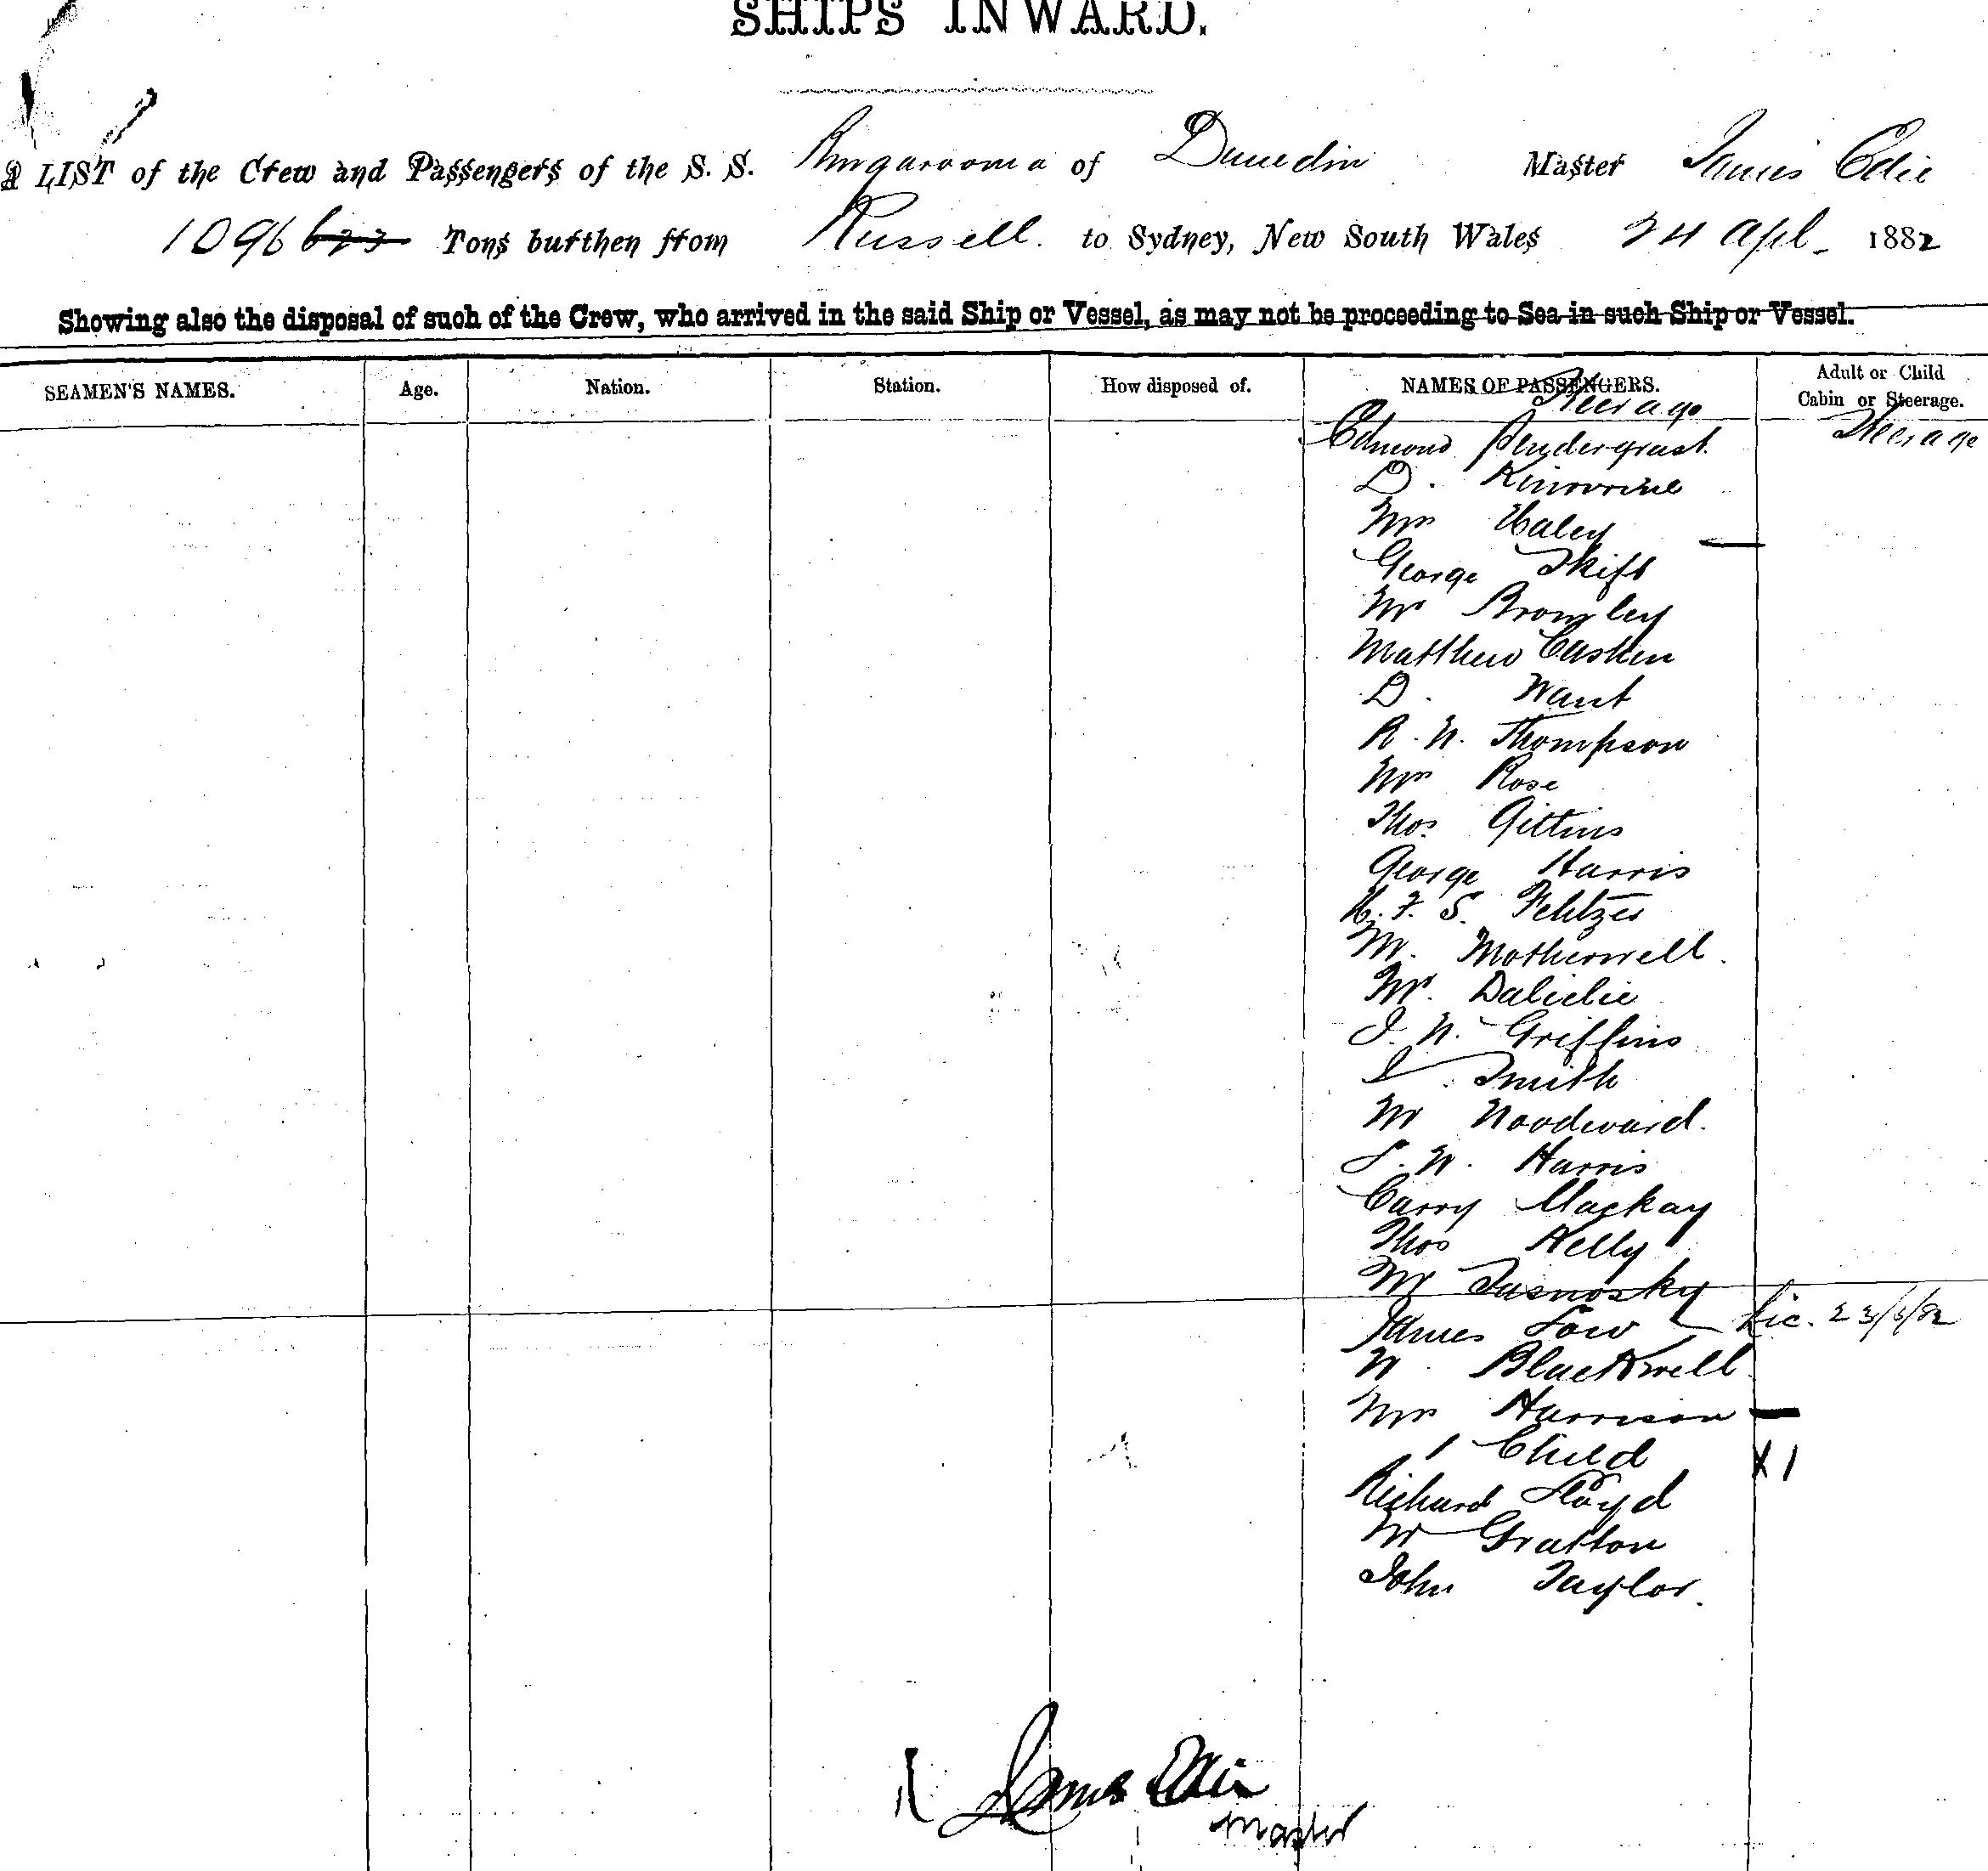 SHIPS INWARD.
A LIST of the Crew and Passengers of the S. S. Ringarooma of Dunedin Master James Edie
1096 623 Tons burthen from Russell. to Sydney, New South Wales 24 Apl. 1882
Showing also the disposal of such of the Crew, who arrived in the said Ship or Vessel, as may not be proceeding to Sea in such Ship or Vessel.
SEAMEN'S NAMES. Age. Nation. Station. How disposed of. NAMES OF PASSENGERS. Adult or Child Cabin or Steerage.
Steerage Steerage
Edmond Pendergrast
D.
Mrs Haley
George Skift
Mr Bromley
Matthew Casken
D. Want
R. W. Thompson
Mrs Rose
Thos. Gittins
George Harris
H. F. S.
M. Motherwell.
Mr. Dalielie
J. W. Griffins
J. Smith
Mr Woodward.
S. W. Harris
Carry Mackay
Thos Kelly
Mr Tasnosky
James Low Lic. 23/6/82
W Blackwell
Mrs Harrison
1 Child X 1
Richard Floyd
Mr Gratton
John Taylor.
James Edie
Master